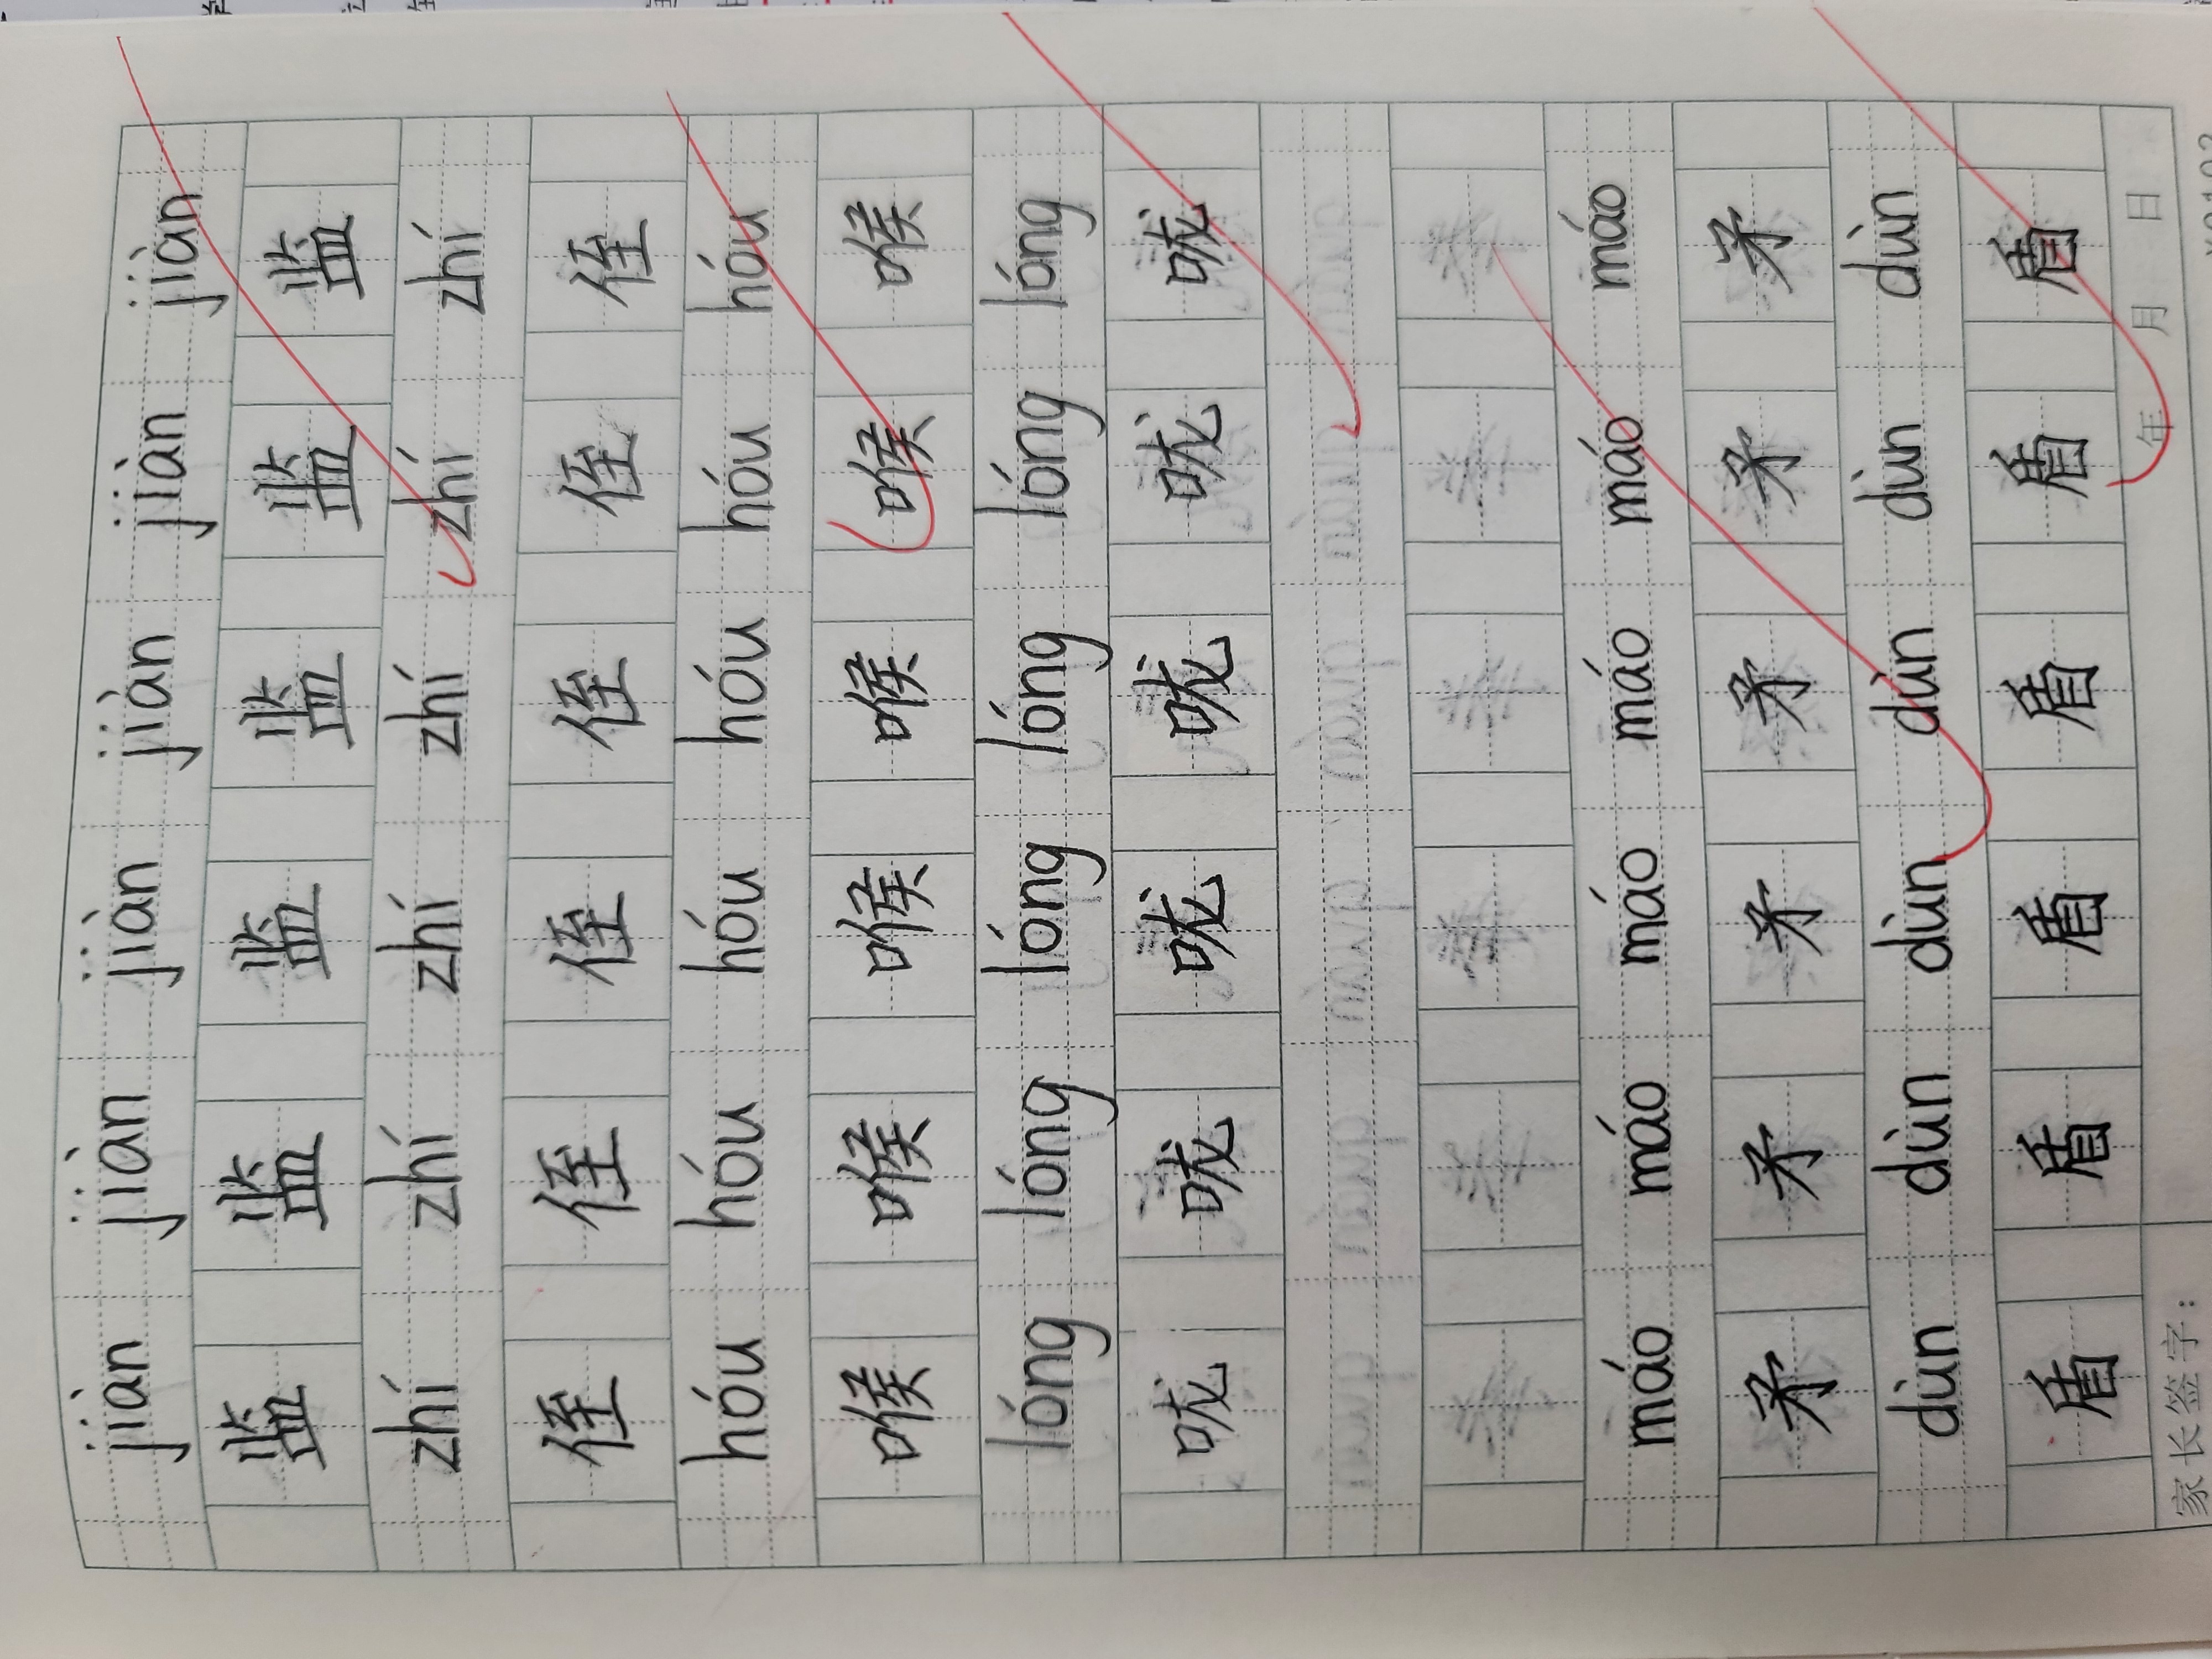 jiàn jiàn jiàn jiàn jiàn jiàn
监 监 监 监 监 监
zhí zhí zhí zhí zhí zhí
侄 侄 侄 侄 侄 侄
hóu hóu hóu hóu hóu hóu
喉 喉 喉 喉 喉 喉
lóng lóng lóng lóng lóng lóng
咙 咙 咙 咙 咙 咙
máo máo máo máo máo máo
矛 矛 矛 矛 矛 矛
dùn dùn dùn dùn dùn dùn
盾 盾 盾 盾 盾 盾
家长签字： 年 月 日